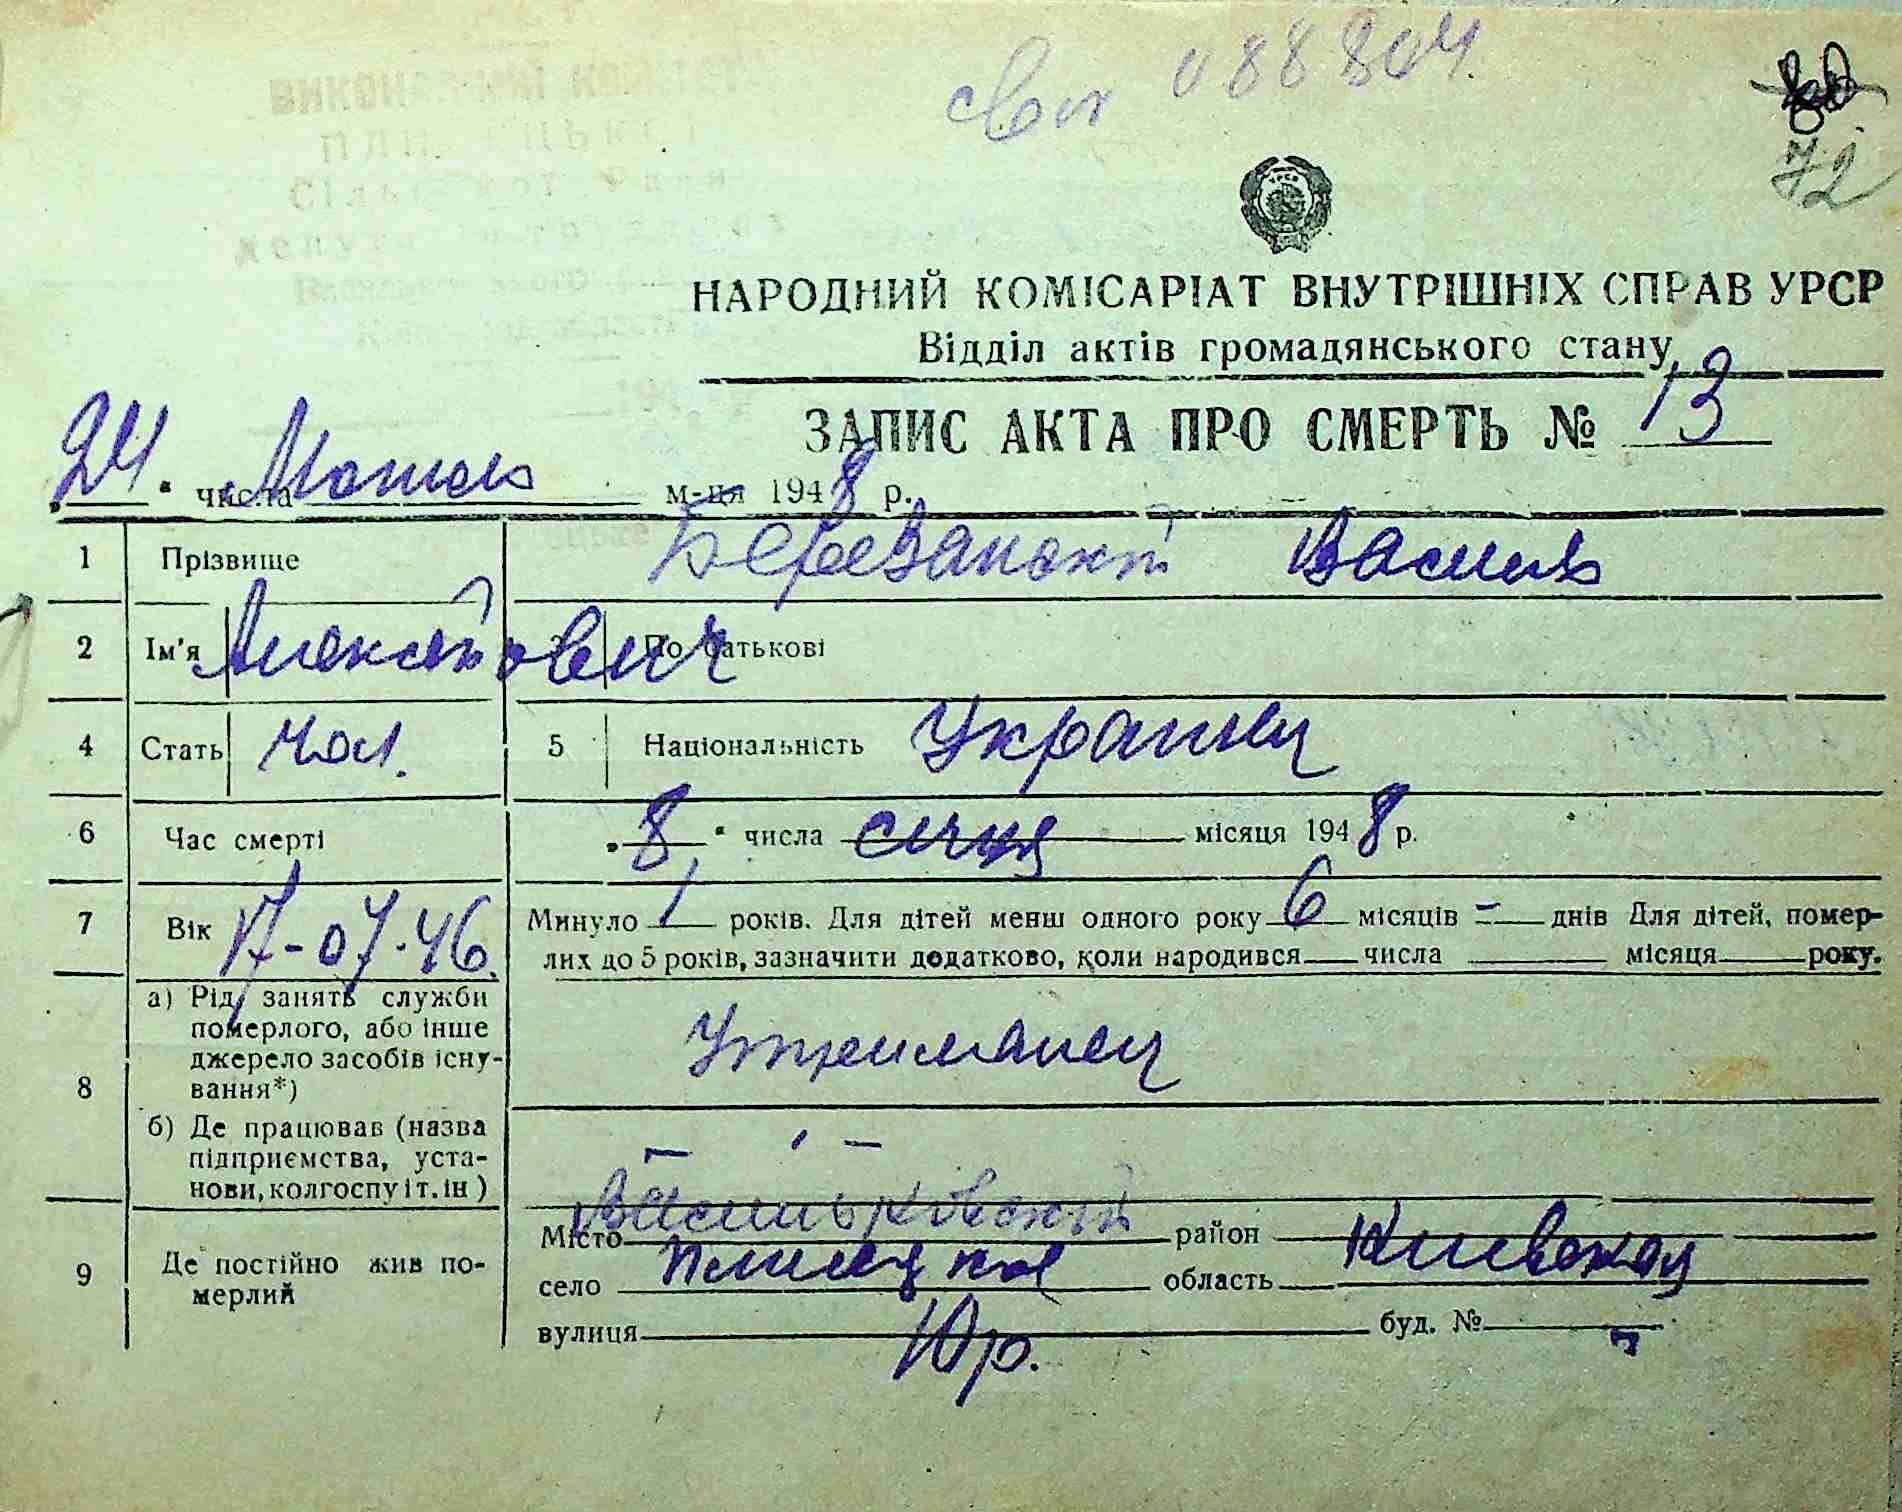 088804
72
НАРОДНИЙ КОМІСАРІАТ ВНУТРІШНІХ СПРАВ УРСР
Відділ актів громадянського стану
ЗАПИС АКТА ПРО СМЕРТЬ № 13
„24“ числа м-ця 1948 р.
1 Прізвище Березанский Василь
2 Ім'я Алексейович 3 По батькові
4 Стать чол. 5 Національність Украинец
6 Час смерті „8“ числа січня місяця 1948 р.
7 Вік 17-07-46. Минуло 1 років. Для дітей менш одного року 6 місяців - днів Для дітей, помер-
лих до 5 років, зазначити додатково, коли народився числа місяця року.
8 а) Рід занять служби
померлого, або інше
джерело засобів існу-
вання*)
Утриманец
б) Де працював (назва
підприємства, уста-
нови, колгоспу і т. ін)
9 Де постійно жив по-
мерлий
Місто Васильковский район
село область Киевская
вулиця буд. №